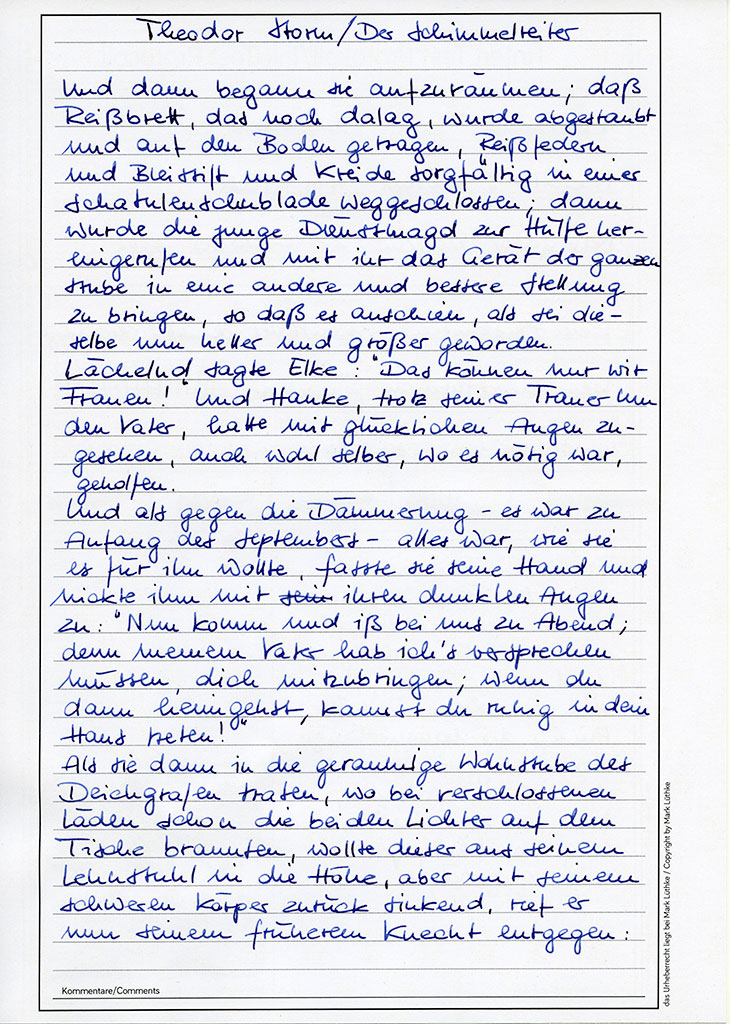 Theodor Storm/Der Schimmelreiter
Und dann begann sie aufzuräumen; daß
Reißbrett, das noch dalag, wurde abgestaubt
und auf den Boden getragen, Reißfedern
und Bleistift und Kreide sorgfältig in einer
Schatulenschublade weggeschlossen; dann
wurde die junge Dienstmagd zur Hülfe her-
eingerufen und mit ihr das Gerät der ganzen
Stube in eine andere und bessere Stellung
zu bringen, so daß es anschien, als sei die-
selbe nun heller und größer geworden.
Lächelnd sagte Elke: "Das können nur wir
Frauen!" Und Hauke, trotz seiner Trauer um
den Vater, hatte mit glücklichen Augen zu-
gesehen, auch wohl selber, wo es nötig war,
geholfen.
Und als gegen die Dämmerung - es war zu
Anfang des Septembers - alles war, wie sie
es für ihn wollte, fasste sie seine Hand und
nickte ihm mit sein ihren dunklen Augen
zu: "Nun komm und iß bei uns zu Abend;
denn meinem Vater hab ich's versprechen
müssen, dich mitzubringen; wenn du
dann heimgehst, kannst du ruhig in dein
Haus treten!"
Als sie dann in die geraumige Wohnstube des
Deichgrafen traten, wo bei verschlossenen
Läden schon die beiden Lichter auf dem
Tische brannten, wollte dieser aus seinem
Lehnstuhl in die Höhe, aber mit seinem
schweren Körper zurück sinkend, rief er
nun seinem früherem Knecht entgegen:
Kommentare/Comments
das Urheberrecht liegt bei Mark Lüthke / Copyright by Mark Lüthke